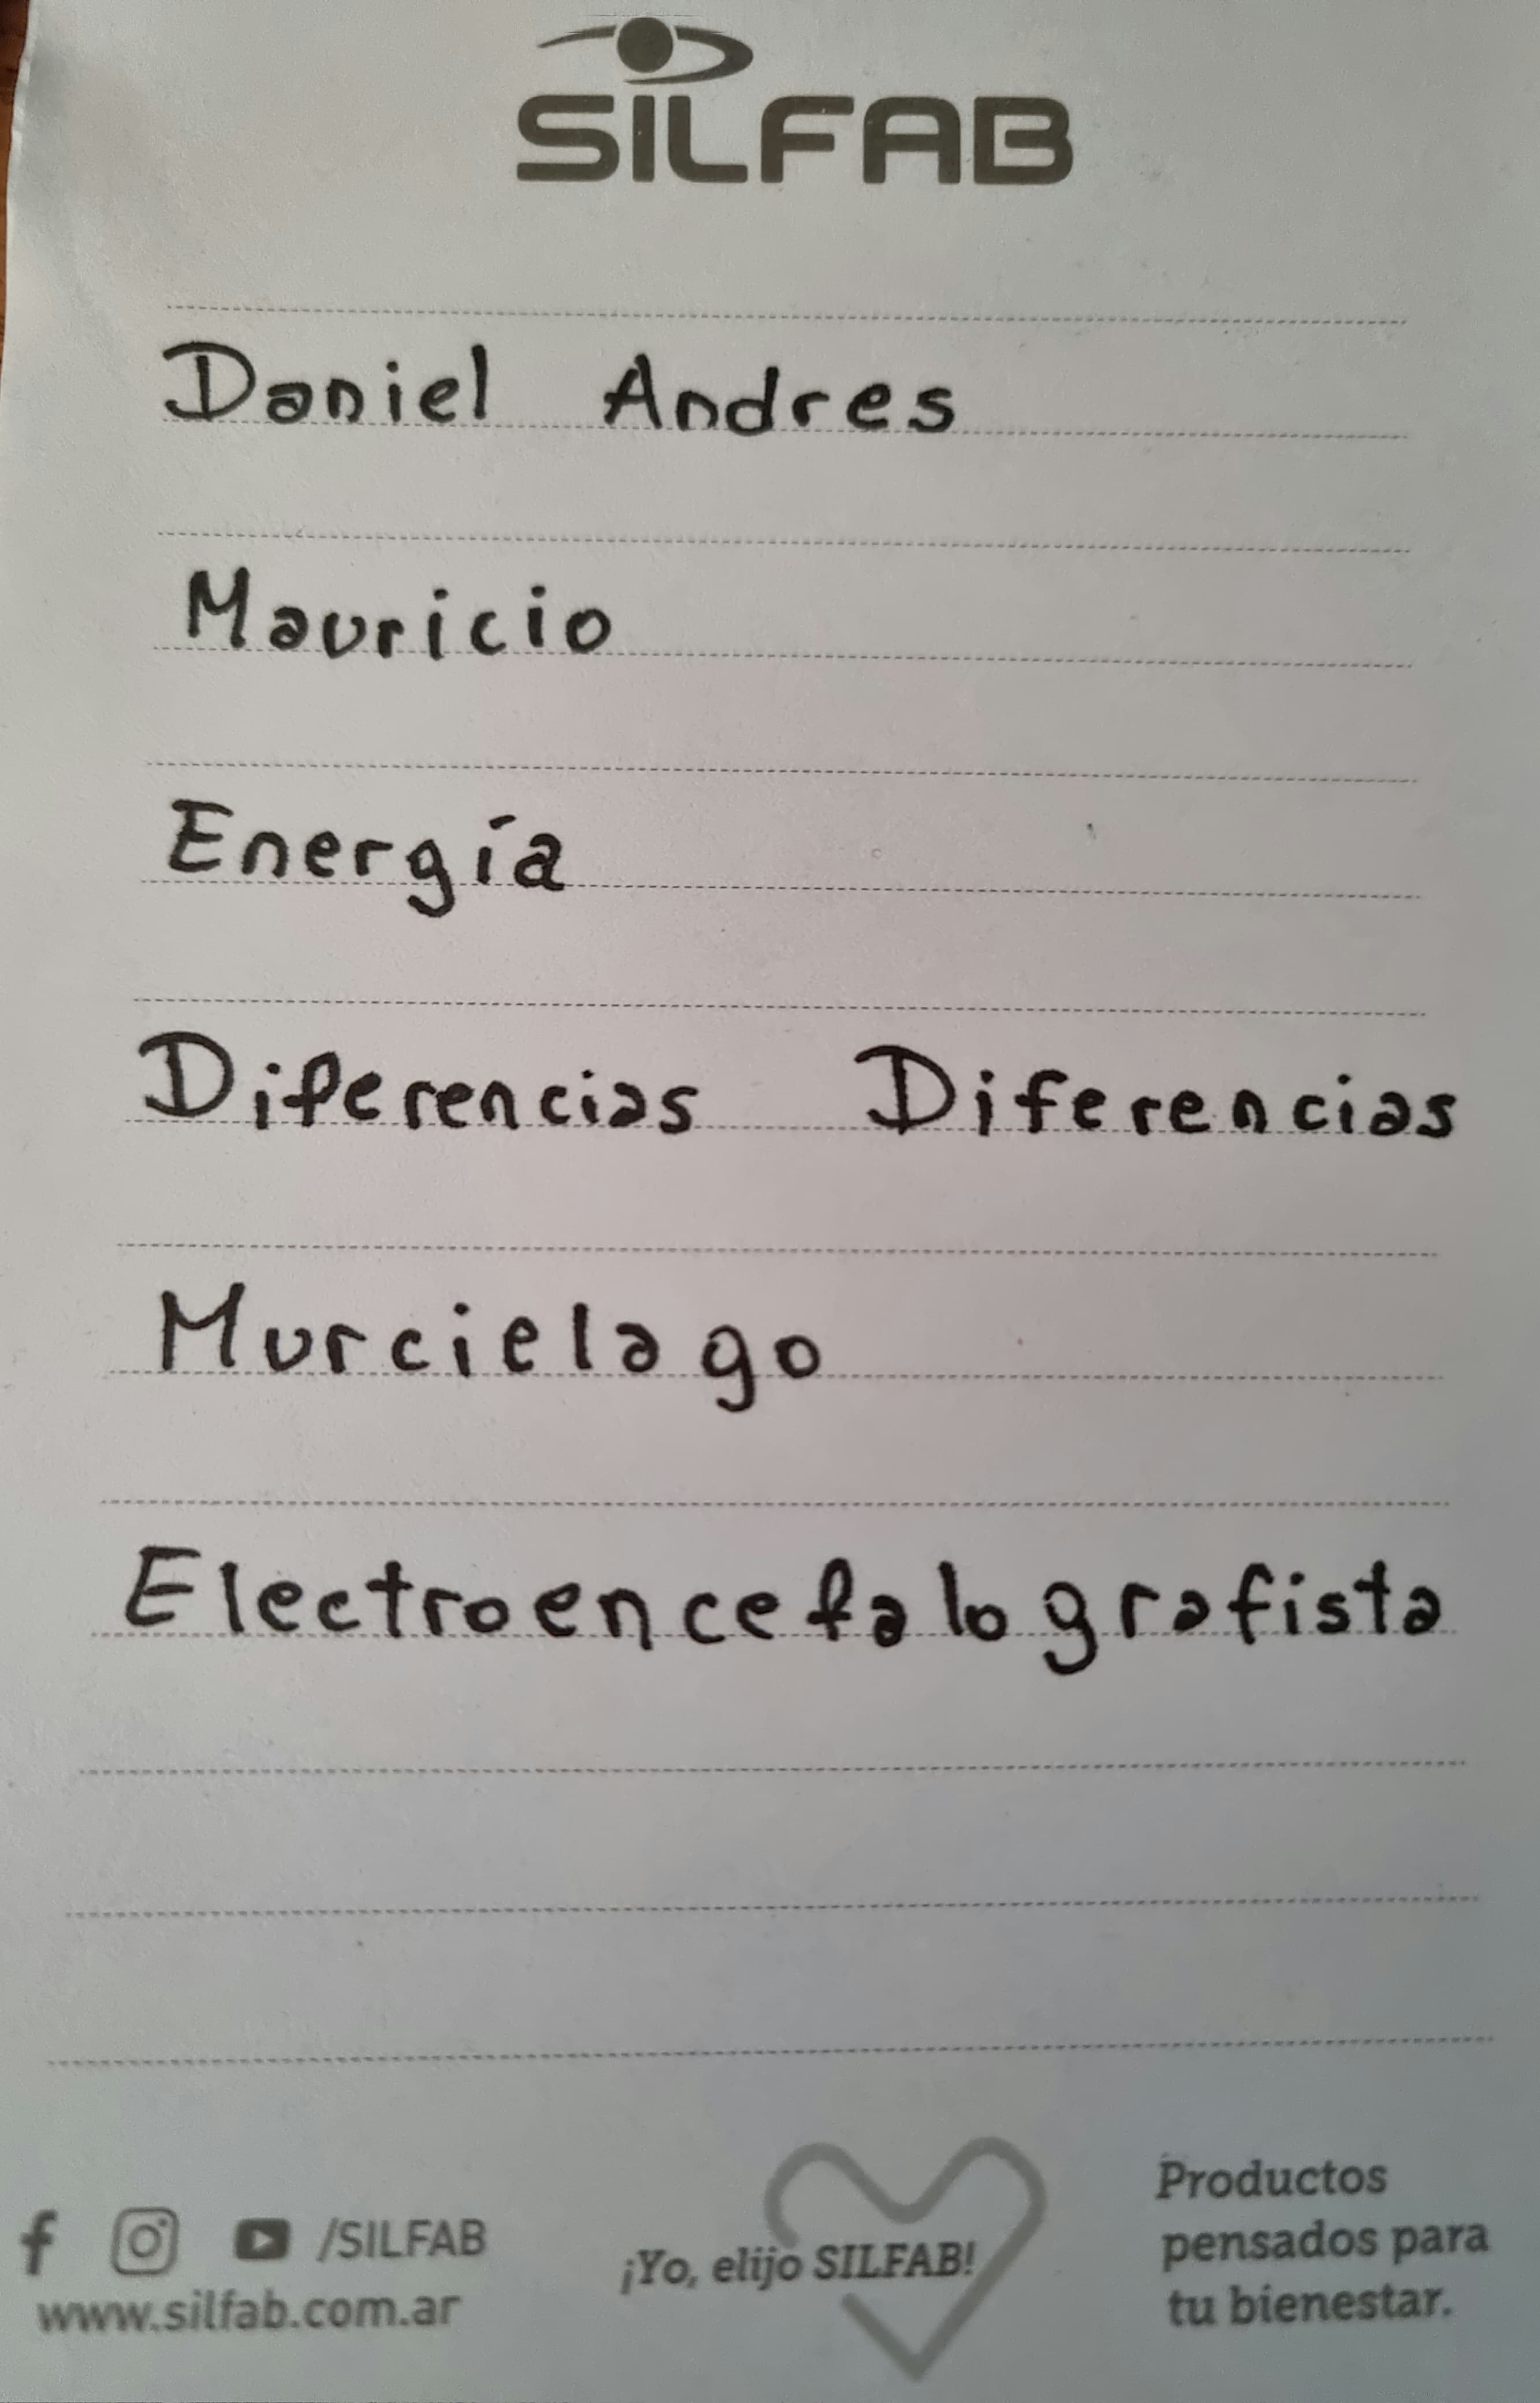 SILFAB
Daniel Andres
Mauricio
Energía
Diferencias Diferencias
Murcielago
Electroencefalografista
/SILFAB
www.silfab.com.ar
¡Yo, elijo SILFAB!
Productos
pensados para
tu bienestar.